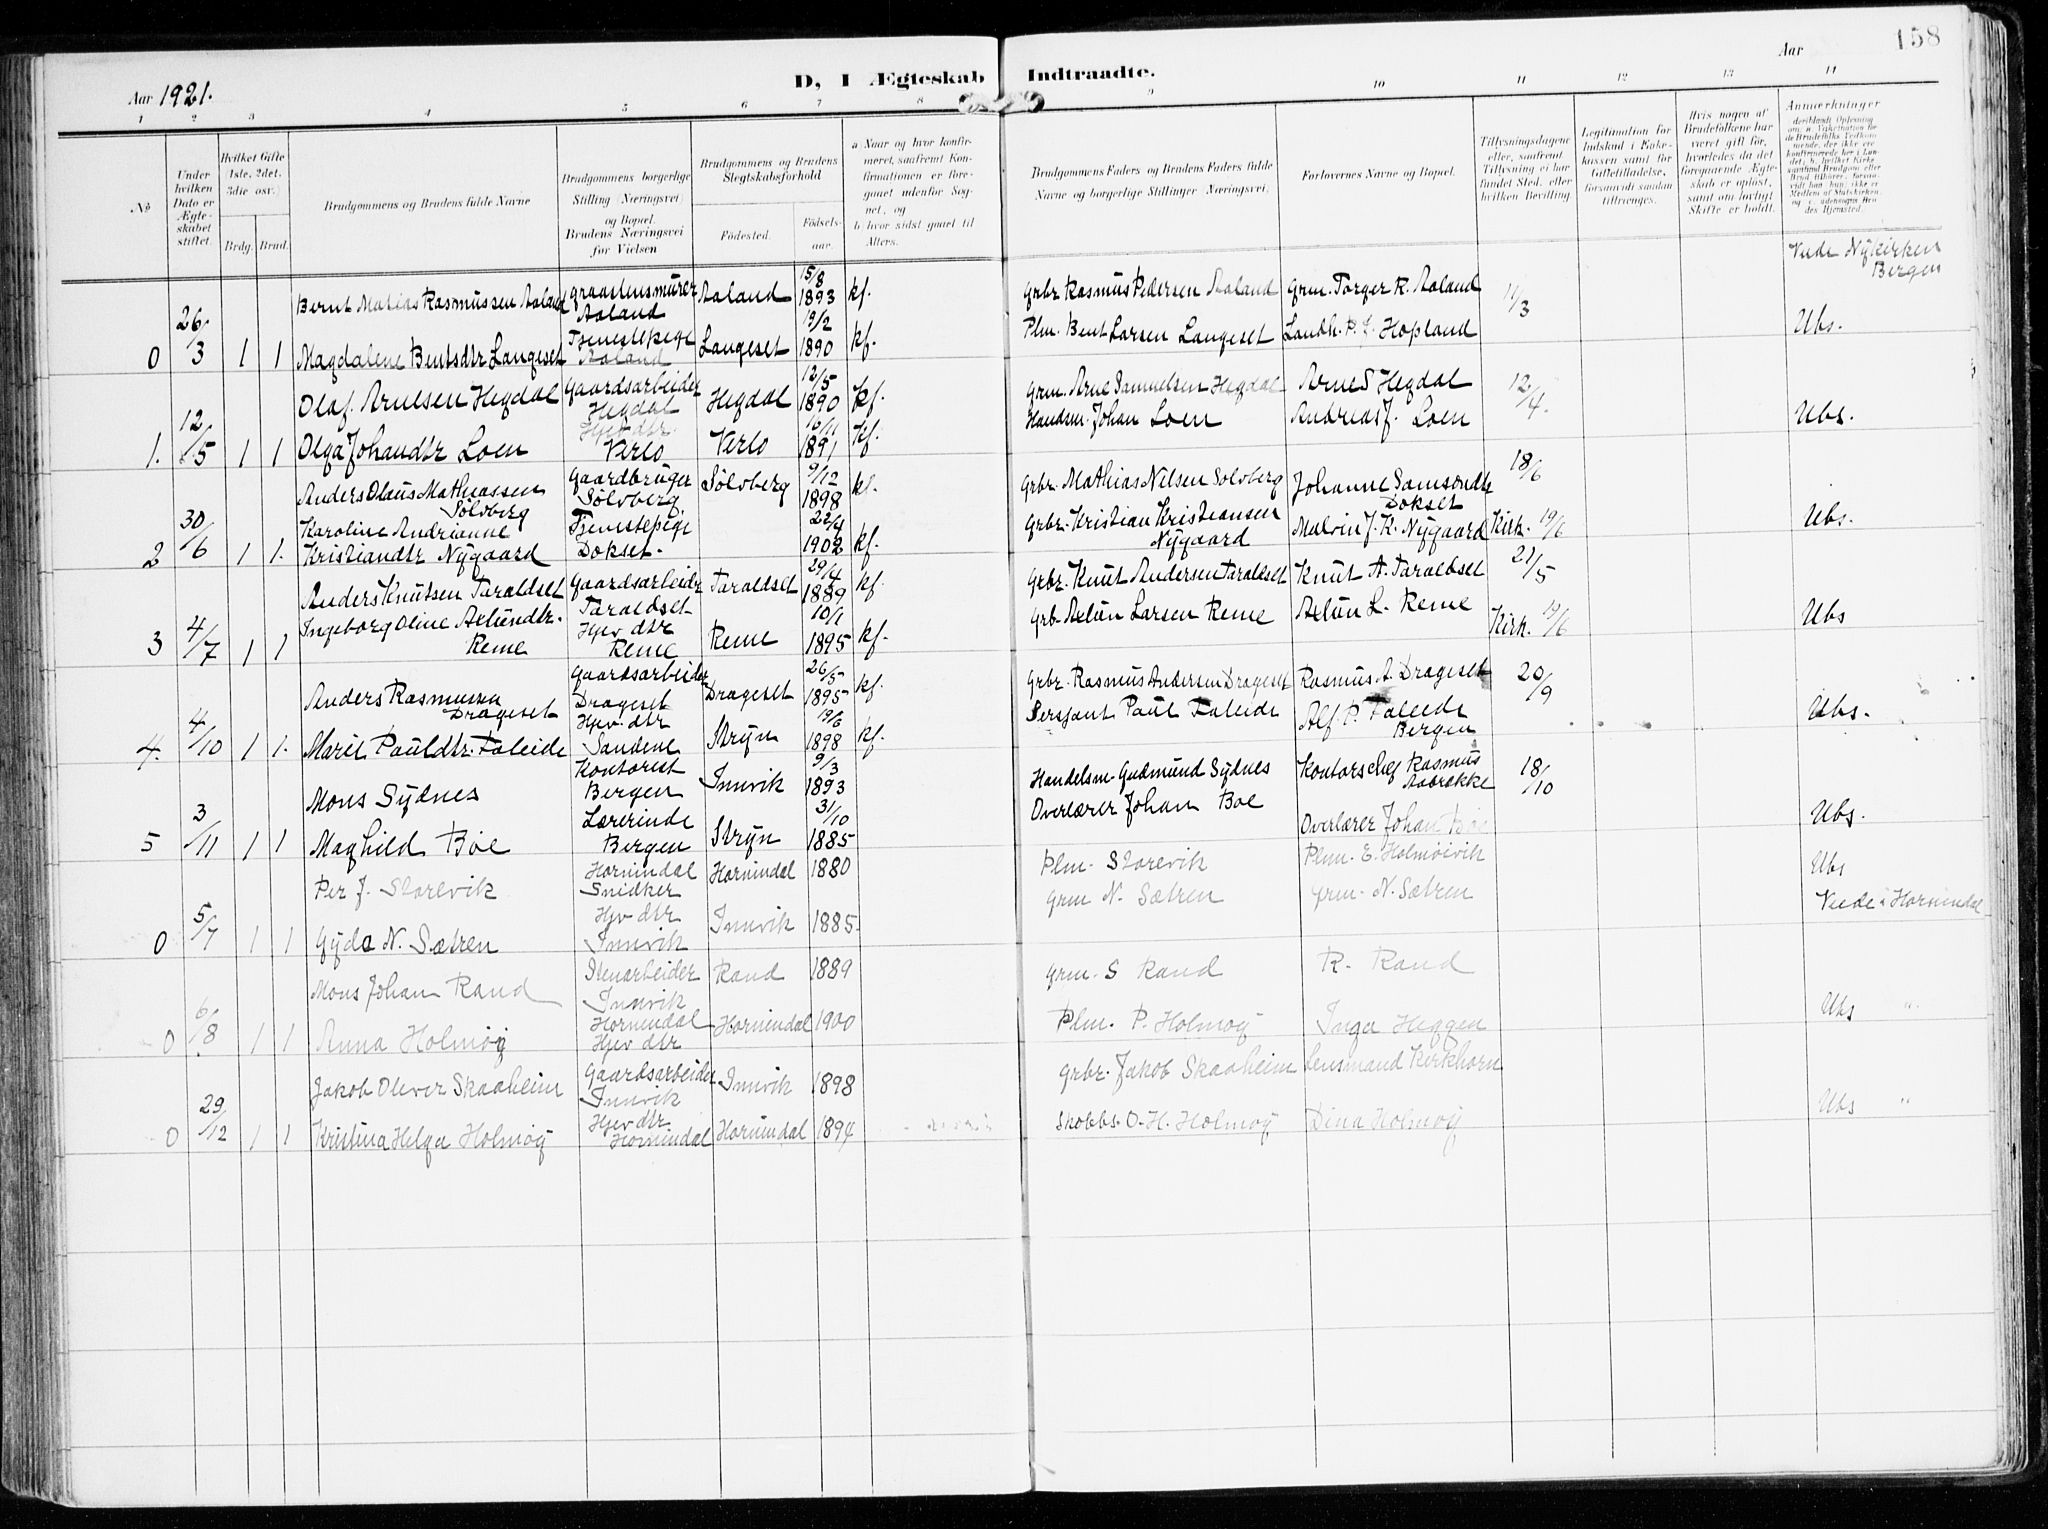 158
Aar 1921.
D, I Ægteskab Indtraadte.
Aar
1 2 3 4 5 6 7 8 9 10 11 12 13 14
No
Under hvilken Dato er Ægteskabet stiftet.
Hvilket Gifte (1ste, 2det, 3die osv.)
Brdg. Brud.
Brudgommens og Brudens fulde Navne
Brudgommens borgerlige Stilling (Næringsvei) og Bopæl. Brudens Næringsvei før Vielsen
Brudgommens og Brudens Slegtskabsforhold
Fødested. Fødselsaar.
a Naar og hvor konfirmeret, saafremt Konfirmationen er foregaaet udenfor Sognet, og
b hvor sidst gaaet til Alters.
Brudgommens Faders og Brudens Faders fulde Navne og borgerlige Stillinger (Næringsvei).
Forlovernes Navne og Bopæl.
Tillysningsdagene eller, saafremt Tillysning ei har fundet Sted, efter hvilken Bevilling
Legitimation for Indskud i Enkekassen samt for Giftetilladelse, forsaavidt saadan tiltrænges.
Hvis nogen af Brudefolkene har været gift før, hvorledes da det foregaaende Ægteskab er opløst, samt om lovligt Skifte er holdt.
Anmærkninger
Viede Nykirken Bergen
0 26/3 1 1
Bernt Matias Rasmussen Aaland Graastensmurer Aaland Aaland 15/8 1893 kf. Grbr Rasmus Pedersen Aaland Grm. Torger R. Aaland 11/3
Magdalene Bentsdtr Langeset Tjenestepige Aaland Langeset 19/2 1890 kf. Plm. Bent Larsen Langeset Landh. P. J. Hopland Ubs.
1. 12/5 1 1
Olaf Arnesen Hegdal Gaardsarbeider Hegdal Hegdal 12/5 1890 kf. Grm. Arne Samuelsen Hegdal Arne S Hegdal 12/4.
Olga Johansdtr Loen Hjev. dtr. Verlo Verlo 16/11 1891 kf. Handsm. Johan Loen Andreas J. Loen Ubs.
2 30/6 1 1.
Anders Olaus Mathiassen Sølvberg Gaardbruger Sølvberg Sølvberg 9/12 1898 kf. Grbr. Mathias Nilsen Sølvberg Johanne Samsondtr Dokset 18/6
Karoline Andrianne Kristiandtr Nygaard Tjenestepige Dokset. 22/4 1902 kf. Grbr. Kristian Kristiansen Nygaard Malvin J. K. Nygaard Kirk. 19/6 Ubs.
3 4/7 1 1
Anders Knutsen Taraldset Gaardsarbeider Taraldset Taraldset 29/4 1889 kf Grbr. Knut Andersen Taraldset Knut A. Taraldset 21/5
Ingeborg Oline Aslundtr. Reme Hjev dtr Reme Reme 10/1 1895 kf. Grb. Aslun Larsen Reme Aslun L. Reme Kirk. 19/6 Ubs
4. 4/10 1 1.
Anders Rasmussen Drageset Gaardsarbeider Drageset Drageset 26/5 1895 kf. Grbr. Rasmus Andersen Drageset Rasmus A. Drageset 20/9
Marie Pauldtr. Faleide Hjev. dtr Sandene Stryn 19/6 1898 kf. Sersjant Paul Faleide Alf P. Faleide Bergen Ubs.
5 3/11 1 1
Mons Sydnes Kontorist Bergen Innvik 9/3 1893 Handelsm. Gudmund Sydnes Kontorschef Rasmus Aabrekke 18/10
Maghild Bøe Lærerinde Bergen Stryn 31/10 1885 Overlærer Johan Bøe Overlærer Johan Bøe Ubs.
0 5/7 1 1
Per J. Storevik Hornindal Snidker Hornindal 1880 Plm. Storevik Plm. E. Holmøivik Ubs
Gyda N. Sætren Hjv dtr Innvik Innvik 1885. Grm N. Sætren Grm. N. Sætren Viede i Hornindal
0 6/8 1 1
Mons Johan Rand Stenarbeider Innvik Rand 1889 Grm. S Rand R. Rand
Anna Holmøy Hornindal Hjev dtr Hornindal 1900 Plm. P. Holmøy Inga Heggen Ubs "
0 29/12 1 1
Jakob Oliver Skaaheim Gaardsarbeider Innvik Innvik 1898 Grbr. Jakob Skaaheim Lensmand Kirkhorn
Kristina Helga Holmøy Hjev dtr. Hornindal Hornindal 1894 Skobbs. O. H. Holmøy Dina Holmøy Ubs "